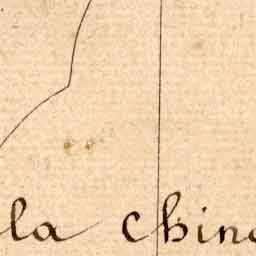 la Chine